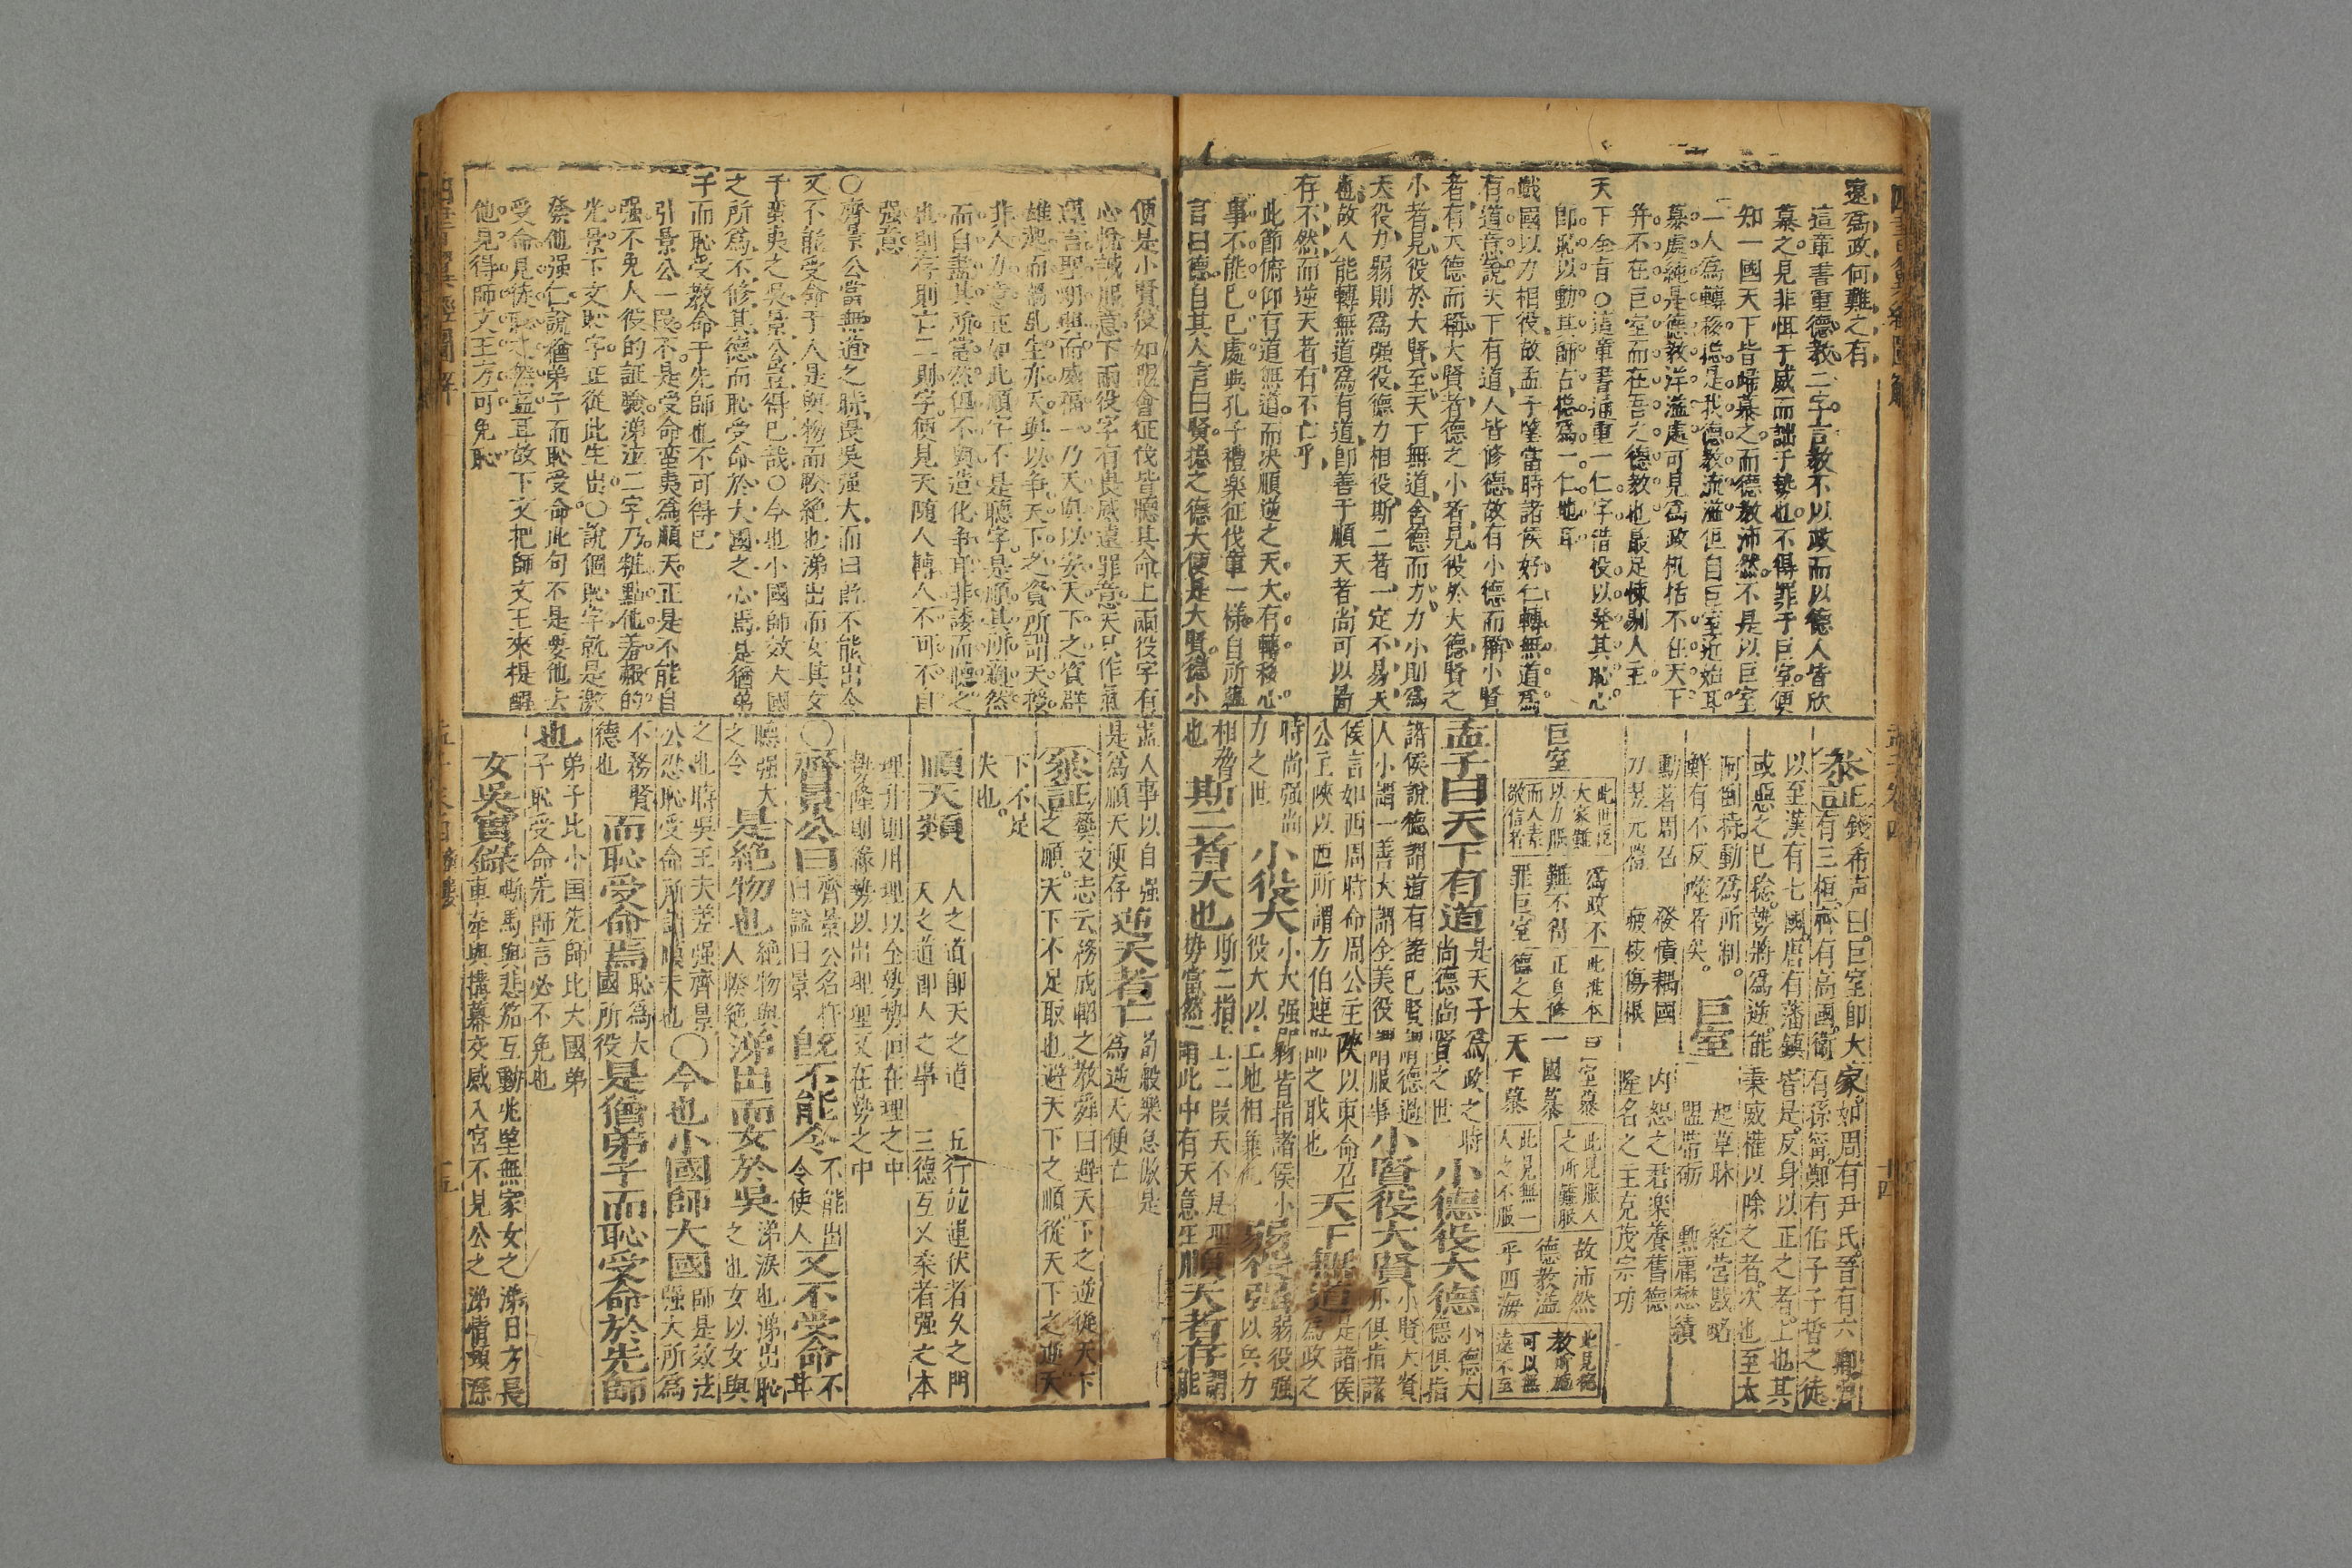 遠爲政何難之有
這章書重德教二字言教不以政而以德人皆欣
慕之見非怛于威而詘于勢也不得罪于巨室便
知一國天下皆歸慕之而德教沛然不是以巨室
一人爲轉移總是我德教流溢但自巨室近始耳
慕處純是德教洋溢處可見爲政机括不在天下
幷不在巨室而在吾之德教也最足悚剔人主
天下全旨○這章書通重一仁字借役以発其恥心
即恥以動其師古總爲一仁地耳
戰國以力相役故孟子筆當時諸侯好仁轉無道爲
有道意說天下有道人皆修德故有小德而稱小賢
者有大德而稱大賢者德之小者見役於大德賢之
小者見役於大賢至天下無道舍德而力力小則爲
大役力弱則爲强役德力相役斯二者一定不易天
也故人能轉無道爲有道即善于順天者尚可以啚
存不然而逆天者有不亡乎
此節俯仰有道無道而決順逆之天大有轉移心
事不能已已處與孔子禮樂征伐章一樣自所蘊
言曰德自其人言曰賢總之德大便是大賢德小
參証 錢希声曰巨室即大家如周有尹氏晉有六卿
有三桓齊有高國衛有孫甯鄭有伯子子晳之徒
以至漢有七國唐有藩鎮皆是反身以正之者上也其
或惡之已稔勢將爲逆能秉威權以除之者次也至太
阿倒持動爲所制
鮮有不反噬者矣
巨室
起草昧 經營戡略
盟帶砺 勲庸懋績
動著周召 発憤耦國 内恕之君樂養舊德
刀昱元膺 疲核傷根 隆名之主克茂宗功
巨室
此世臣大家難以力服而人素敬信者
爲政不難不得罪巨室
此准本正身修德之大
巨室慕一國慕天下慕
此見服人之所難服
此見無一人之不服
故沛然德教溢乎四海
此見德教所施可以無遠不至
孟子曰天下有道 是天子爲政之時尚德尚賢之世 小德役大德 小德大德俱指
諸侯說德謂道有諸己賢謂德過人小謂一善大謂全美役謂服事 小賢役大賢 小賢大賢亦俱指諸
侯言如西周時命周公主陝以東命召公主陝以西所謂方伯連帥之職也 天下無道 是諸侯爲政之
時尚强尚力之世 小役大 小大强弱皆指諸侯小役大以土地相兼倂 弱役强 弱役强以兵力
相脅也 斯二者天也 斯二指上二段天不是理勢當然一面此中有天意在 順天者存 謂能
便是小賢役如盟會征伐皆聽其命上兩役字有
心悅誠服意下兩役字有畏威遠罪意天只作氣
運言聖明興而威福一乃天與以安天下之資群
雄起而禍乱生亦天與以争天下之資所謂天授
非人力意正如此順字不是聽字是順其所適然
而自盡其所當然但不與造化争耳非諉而聽之
也則存則亡二則字便見天随人轉人不可不自
强意
○齊景公當無道之時畏吳强大而曰既不能出令
又不能受命于人是與物而睽絶也涕出而女其女
于蛮夷之吳景公豈得已哉○今也小國師效大國
之所爲不修其德而恥受命於大國之心焉是猶弟
子而恥受教命于先師也不可得已
引景公一段不是受命蛮夷爲順天正是不能自
强不免人役的証驗涕泣二字乃粧點他羞赧的
光景下文恥字正從此生出○說個恥字就是激
發他强仁說猶弟子而恥受命此句不是要他去
受命見徒恥之無益耳故下文把師文王來提醒
他見得師文王方可免恥
盡人事以自强是爲順天便存 逆天者亡 苟般樂怠傲是爲逆天便亡
參証 藝文志云務成鄣之敎舜曰避天下之逆從天下之順天下不足取也避天下之順從天下之逆天
下不足失也
順天類 人之道即天之道 五行於運伏者久之門
天之道即人之事 三德互乂柔者强之本
理升則用理以全勢勢但在理之中
勢隆則緣勢以出理理又在勢之中
○齊景公曰 齊景公名杵臼諡曰景 既不能令 不能出令使人 又不受命 不聽强大之令
是絶物也 絶物與人睽絶 涕出而女於吳 涕淚也涕出恥之也女以女與
之也時吳王夫差强齊景公恐恥受命所謂順天也 ○今也小國師大國 師是效法强大所爲
不務脩德也 而恥受命焉 恥爲大國所役 是猶弟子而恥受命於先師
也 弟子比小国先師比大國弟子恥受命先師言必不免也
女吳實錄 嘶馬與悲笳互動兆堅無家女之涕日方長
車塵與撲幕交感入宮不見公之涕情頻深